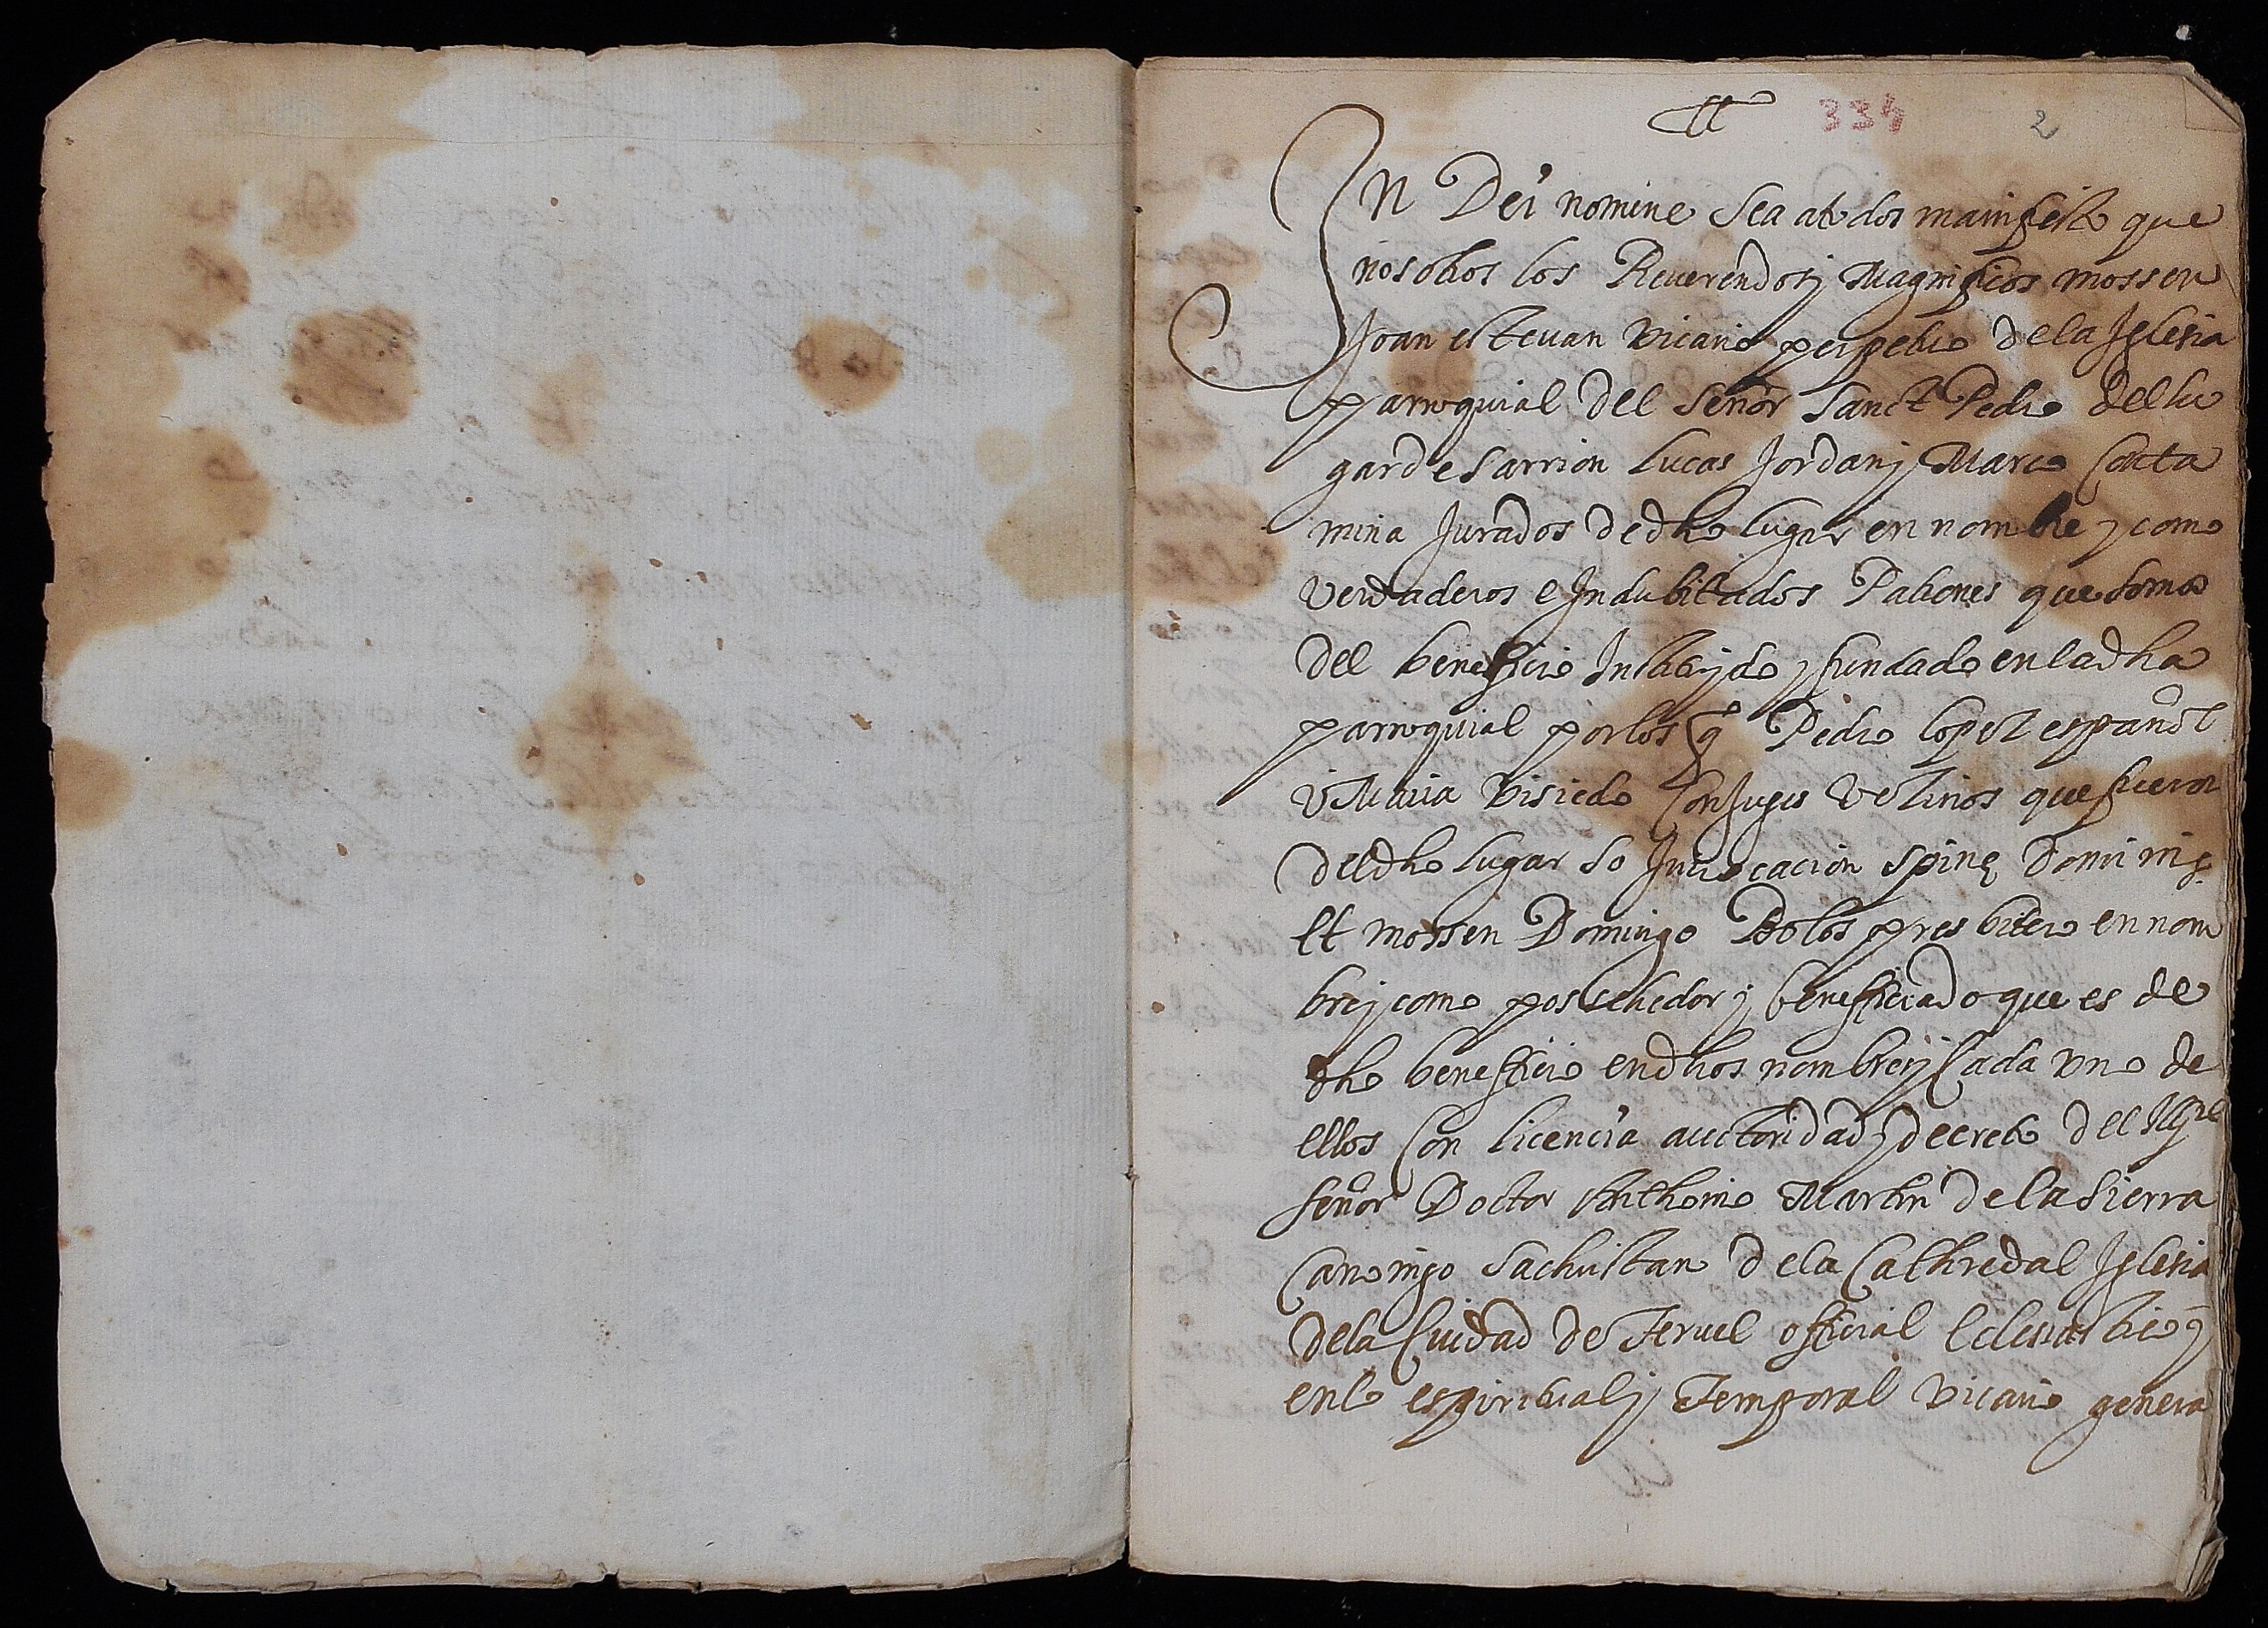 334 2
In Dei nomine Sea atodos manifiesto que
nosotros los Reuerendos y Magnificos mossen
Joan esteuan vicario perpetuo dela Iglesia
parroquial del señor Sanct Pedro dellu
gar de Sarrion lucas Jordan y Marco Catta
mina Jurados de dho lugar en nombre y como
verdaderos e Indubitados Patrones que somos
del beneffício Instituydo y fundado en la dha
parroquial por los q̃ Pedro lopez español
i Maria visiedo Conjuges vezinos que fueron
del dho lugar so Inuocacion spinę dominicę
Et mossen Domingo Dolos presbitero en nom
bre y como possehedor y beneffíciado que es de
dho benefficio en dhos nombres y Cada vno de
ellos Con licencia auctoridad y decreto del Illre
señor Doctor Anthonio Martin de la Sierra
Canonigo Sachristan dela Cathredal Iglesia
dela Ciudad de Teruel official Eclesiastico y
en lo espiritual y Temporal vicario genera